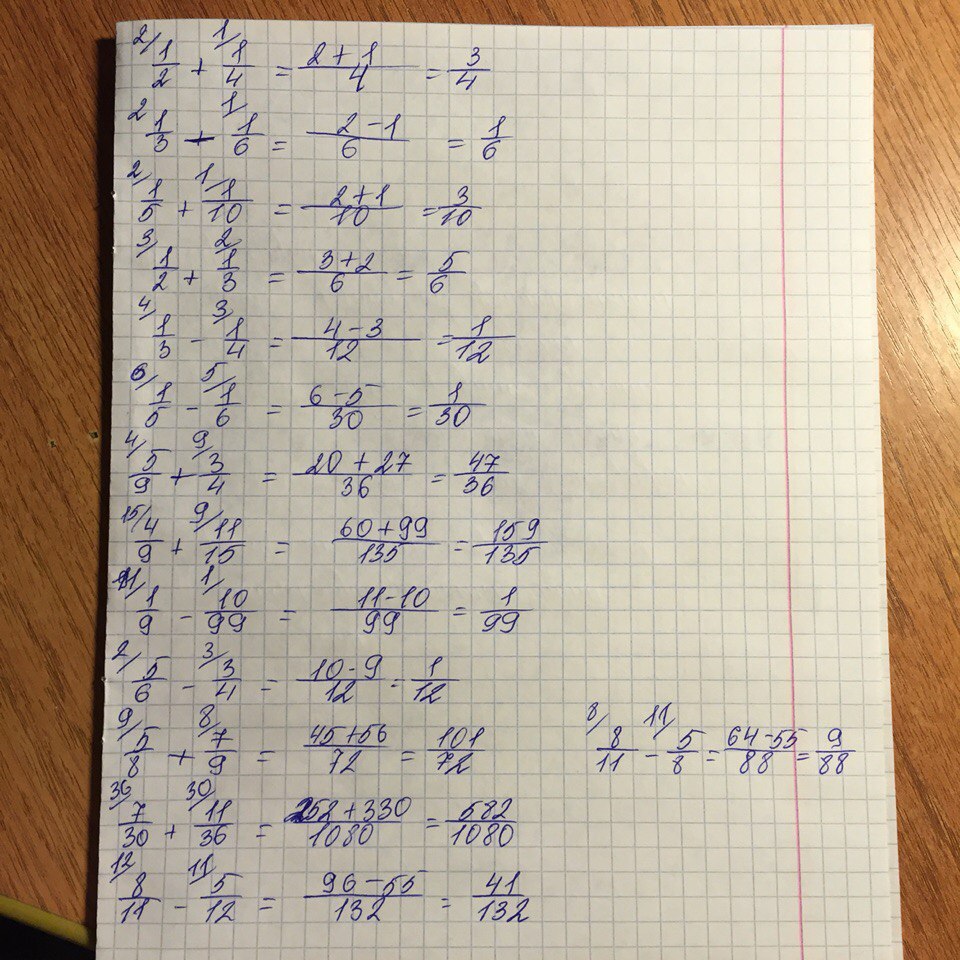 2/ 1/2 + 1/ 1/4 = (2+1)/4 = 3/4
2 1/3 - 1/ 1/6 = (2-1)/6 = 1/6
2/ 1/5 + 1/ 1/10 = (2+1)/10 = 3/10
3/ 1/2 + 2/ 1/3 = (3+2)/6 = 5/6
4/ 1/3 - 3/ 1/4 = (4-3)/12 = 1/12
6/ 1/5 - 5/ 1/6 = (6-5)/30 = 1/30
4/ 5/9 + 9/ 3/4 = (20+27)/36 = 47/36
15/ 4/9 + 9/ 11/15 = (60+99)/135 = 159/135
11/ 1/9 - 1/ 10/99 = (11-10)/99 = 1/99
2/ 5/6 - 3/ 3/4 = (10-9)/12 = 1/12
9/ 5/8 + 8/ 7/9 = (45+56)/72 = 101/72
8/ 8/11 - 11/ 5/8 = (64-55)/88 = 9/88
36/ 7/30 + 30/ 11/36 = (252+330)/1080 = 582/1080
12/ 8/11 - 11/ 5/12 = (96-55)/132 = 41/132